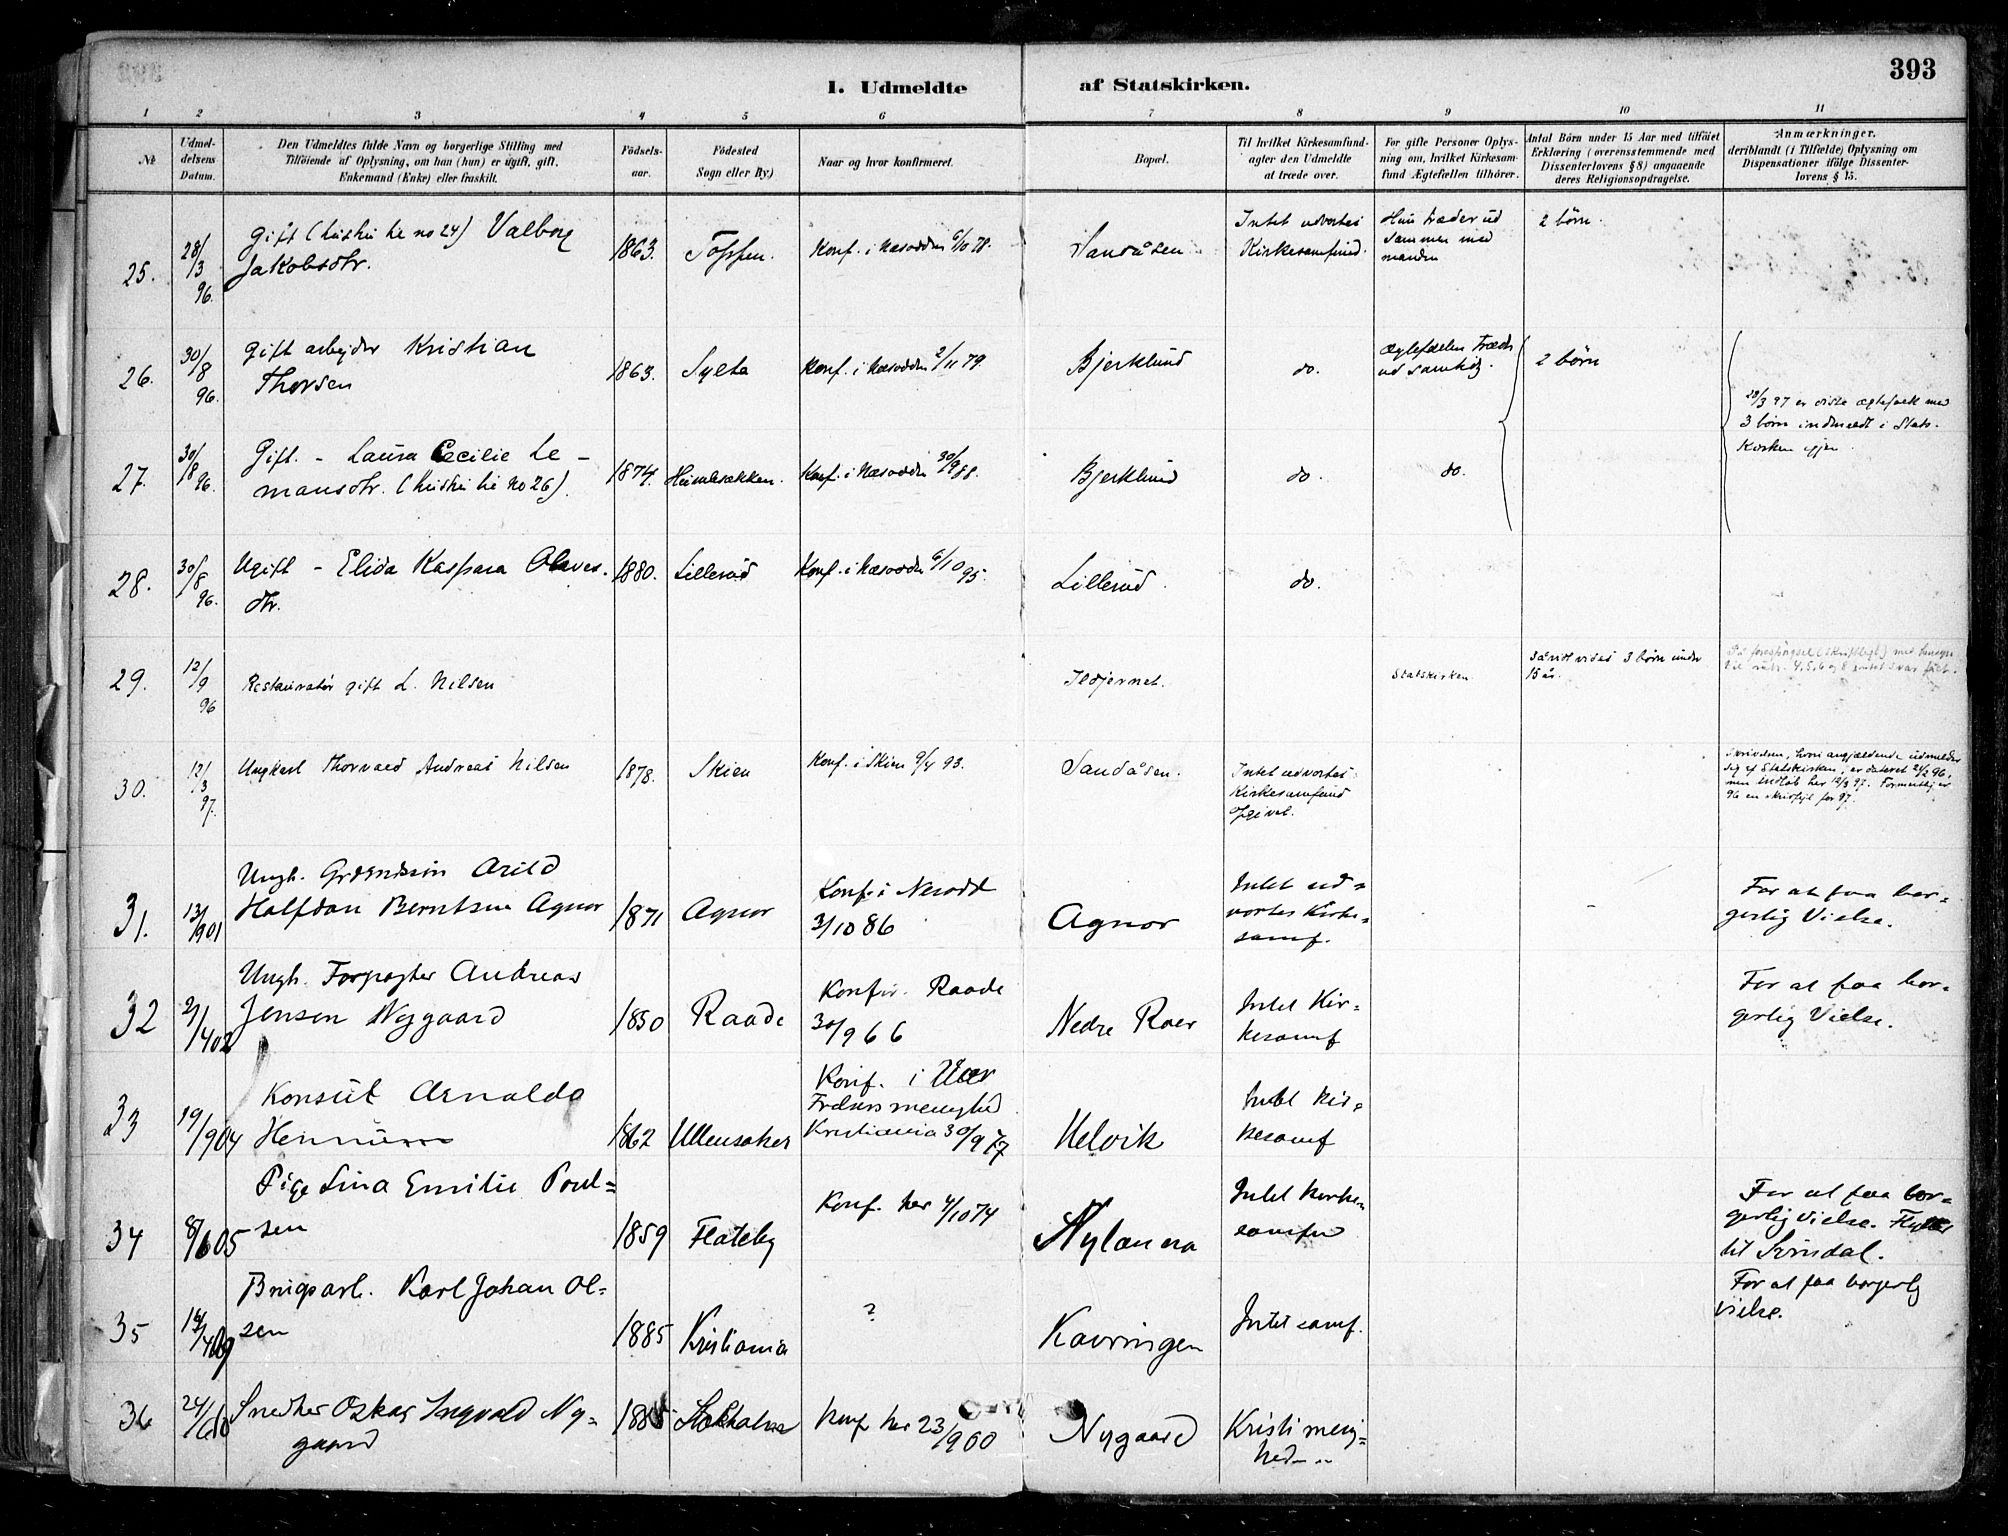 393
I. Udmeldte af Statskirken.
1 2 3 4 5 6 7 8 9 10 11
№
Udmel-
delsens
Datum.
Den Udmeldtes fulde Navn og borgerlige Stilling med
Tilföiende af Oplysning, om han (hun) er ugift, gift,
Enkemand (Enke) eller fraskilt.
Födsels-
aar.
Födested
Sogn eller By.)
Naar og hvor konfirmeret.
Bopæl.
Til hvilket Kirkesamfund
agter den Udmeldte
at træde over.
For gifte Personer Oplys-
ning om, hvilket Kirkesam-
fund Ægtefællen tilhörer.
Antal Börn under 15 Aar med tilföiet
Erklæring (overensstemmende med
Dissenterlovens § 8) angaaende
deres Religionsopdragelse.
Anmærkninger,
deriblandt (i Tilfælde) Oplysning om
Dispensationer ifölge Dissenter-
lovens § 15.
25.
28/
13
96.
Gift (hustru til no 24) Valborg
Jakobsdtr.
1863.
Toppen.
Konf. i Næsodden 6/10 78.
Sandåsen
Intet udvortes
Kirkesamfund.
Hun træder ud
sammen med
manden
2 børn.
26.
30/
8
96.
Gift arbejder Kristian
Thorsen
1863.
Sylta
Konf. i Næsodden 2/11 79.
Bjerklund
do.
Ægtefællen træder
ud samtidig.
2 børn
28/3 97 er disse ægtefolk med
3 børn indmeldt i Stats-
Kirken igjen.
27.
30/
8 96.
Gift. - Laura Cecilie Le-
mansdtr. (hustru til no 26).
1874.
Konf. i Næsodden 30/9 88.
Bjerklund
do.
do.
28.
30/
8
96.
Ugift - Elida Kaspara Olaves-
dtr.
1880.
Lillerud
Konf. i Næsodden 6/10 95.
Lillerud.
do.
29.
12/
9
96
Restauratør gift L. Nilsen
Ildjernet.
Statskirken.
3 børn under
15 år.
På forespørgsel (skriftligt) med hensyn
til rubr. 4, 5, 6 og 8 intet svar fået.
30.
12/
3
97.
Ungkarl Thorvald Andreas Nilsen
1878.
Skien
Konf. i Skien 9/4 93.
Sandåsen.
Intet udvortes
Kirkesamfund
Opgivet.
Skrivelsen, hvori angjældende udmelder
sig af Statskirken, er dateret 24/2 96,
men indløb her 12/3 97. Formentlig er
96 en skrivfejl for 97.
31.
13/
901
Ungk. Grdeiersøn Arild
Halfdan Berntsen Agnor
1871
Agnor
Konf. i Nesodd
3/10 86
Agnor
Intet ud-
vortes Kirke-
samf.
For at faa bor-
gerlig Vielse.
32
2/
402
Ungk. Forpagter Andreas
Jensen Nygaard
1850
Raade
Konfir. Raade
30/9 66
Nedre Roer
Intet Kir-
kesamf
For at faa bor-
gerlig Vielse.
33
19/
904
Konsul Arnaldo
Hennum
1862
Ullensaker
Konf. i Vor
Frelsers menighed
Kristiania 30/9 77
Helvik
Intet Kir-
kesamf
34
8/605
Pige Lina Emilie Poul-
sen
1859
Flateby
Konf. her 4/10 74
Nylænna
Intet Kirke-
samfu
For at faa bor-
gerlig Vielse. Flyttet
til Svindal.
35
14/
409
Brugsarb. Karl Johan Ol-
sen
1885
Kristiania
?
Kavringen
Intet samf.
For at faa borgerlig
vielse.
36
24/
610
Snedker Oskar Ingvald Ny-
gaard
1885
Konf her 23/9 00
Nygaard
Kristi menig-
hed